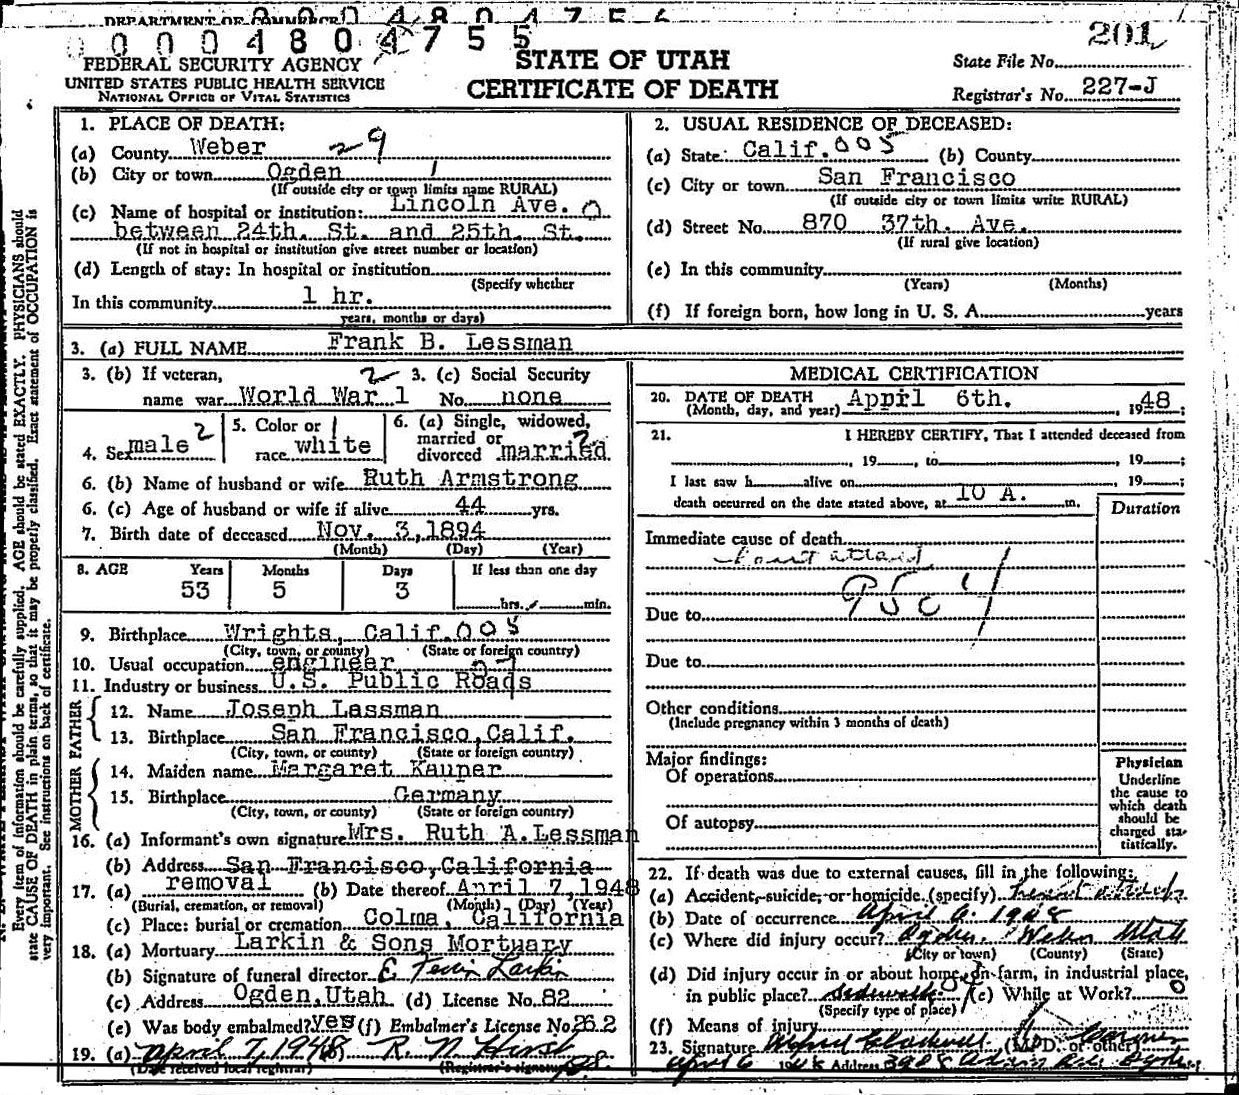 DEPARTMENT OF COMMERCE
0 0 0 4 8 0 4 7 5 5
201
FEDERAL SECURITY AGENCY
UNITED STATES PUBLIC HEALTH SERVICE
NATIONAL OFFICE OF VITAL STATISTICS
STATE OF UTAH
CERTIFICATE OF DEATH
State File No.
Registrar's No. 227-J
Every item of information should be carefully supplied. AGE should be stated EXACTLY. PHYSICIANS should
state CAUSE OF DEATH in plain terms, so that it may be properly classified. Exact statement of OCCUPATION is
very important. See instructions on back of certificate.
1. PLACE OF DEATH:
(a) County Weber 29
(b) City or town Ogden 1
(If outside city or town limits name RURAL)
(c) Name of hospital or institution: Lincoln Ave. 0
between 24th. St. and 25th. St.
(If not in hospital or institution give street number or location)
(d) Length of stay: In hospital or institution
(Specify whether
In this community 1 hr.
years, months or days)
2. USUAL RESIDENCE OF DECEASED:
(a) State: Calif. 005 (b) County
(c) City or town San Francisco
(If outside city or town limits write RURAL)
(d) Street No. 870 37th. Ave.
(If rural give location)
(e) In this community
(Years) (Months)
(f) If foreign born, how long in U. S. A. years
3. (a) FULL NAME Frank B. Lessman
3. (b) If veteran, 2 3. (c) Social Security
name war World War 1 No. none
4. Sex male 2
5. Color or 1
race white
6. (a) Single, widowed,
married or 2
divorced married
6. (b) Name of husband or wife Ruth Armstrong
6. (c) Age of husband or wife if alive 44 yrs.
7. Birth date of deceased Nov. 3, 1894
(Month) (Day) (Year)
8. AGE Years Months Days If less than one day
53 5 3 hrs. min.
9. Birthplace Wrights, Calif. 005
(City, town, or county) (State or foreign country)
10. Usual occupation engineer
11. Industry or business U.S. Public Roads
FATHER
12. Name Joseph Lassman
13. Birthplace San Francisco, Calif.
(City, town, or county) (State or foreign country)
MOTHER
14. Maiden name Margaret Kauper
15. Birthplace Germany
(City, town, or county) (State or foreign country)
16. (a) Informant's own signature Mrs. Ruth A. Lessman
(b) Address San Francisco, California
17. (a) removal (b) Date thereof April 7, 1948
(Burial, cremation, or removal) (Month) (Day) (Year)
(c) Place: burial or cremation Colma, California
18. (a) Mortuary Larkin & Sons Mortuary
(b) Signature of funeral director Larkin
(c) Address Ogden, Utah (d) License No. 82
(e) Was body embalmed? yes (f) Embalmer's License No. 262
19. (a) April 7, 1948 (b) R. N. Hirst
(Date received local registrar) (Registrar's signature)
MEDICAL CERTIFICATION
20. DATE OF DEATH April 6th. , 1948;
(Month, day, and year)
21. I HEREBY CERTIFY, That I attended deceased from
, 19 , to , 19 ;
I last saw h alive on , 19 ;
death occurred on the date stated above, at 10 A. m.
Duration
Immediate cause of death
heart attack
Due to
Due to
Other conditions
(Include pregnancy within 3 months of death)
Major findings:
Of operations
Of autopsy
Physician
Underline
the cause to
which death
should be
charged sta-
tistically.
22. If death was due to external causes, fill in the following:
(a) Accident, suicide, or homicide (specify) heart attack
(b) Date of occurrence April 6. 1948
(c) Where did injury occur? Ogden. Weber Utah
(City or town) (County) (State)
(d) Did injury occur in or about home, on farm, in industrial place,
in public place? sidewalk (e) While at Work? 0
(Specify type of place)
(f) Means of injury
23. Signature (M.D. or other)
April 6 1948 Address